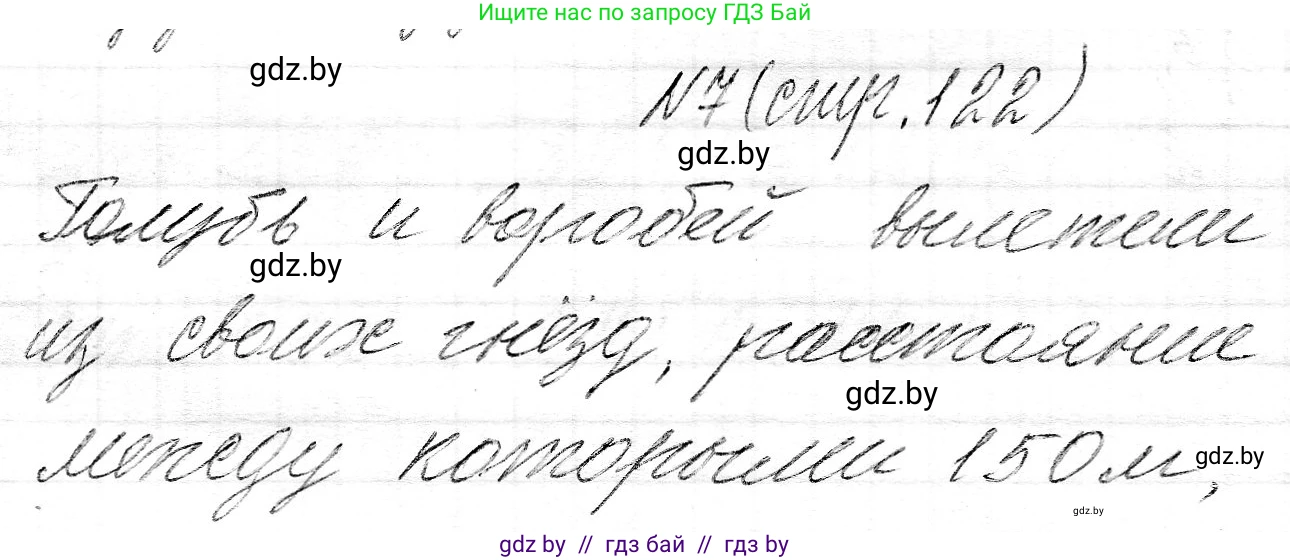 Ищите нас по запросу ГДЗ Бай
gdz.by
N7 (стр. 122)
gdz.by
Голубь и воробей вылетели
gdz.by
из своих гнёзд, расстояние
gdz.by
между которыми 150 м,
gdz.by
gdz.by
gdz.by // гдз бай // гдз by